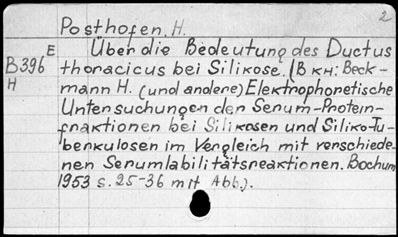 2
Posthofen, H.
E Über die Bedeutung des Ductus
B396 thoracicus bei Silikose. (B кн: Beck-
H mann H. (und andere) Elektrophonetische
Untersuchungen der Serum-Protein-
fraktionen bei Silikosen und Siliko-Tu-
berkulosen im Vergleich mit verschiede-
nen Serumlabilitätsreaktionen. Bochum
1953 s. 25-36 mit Abb.).